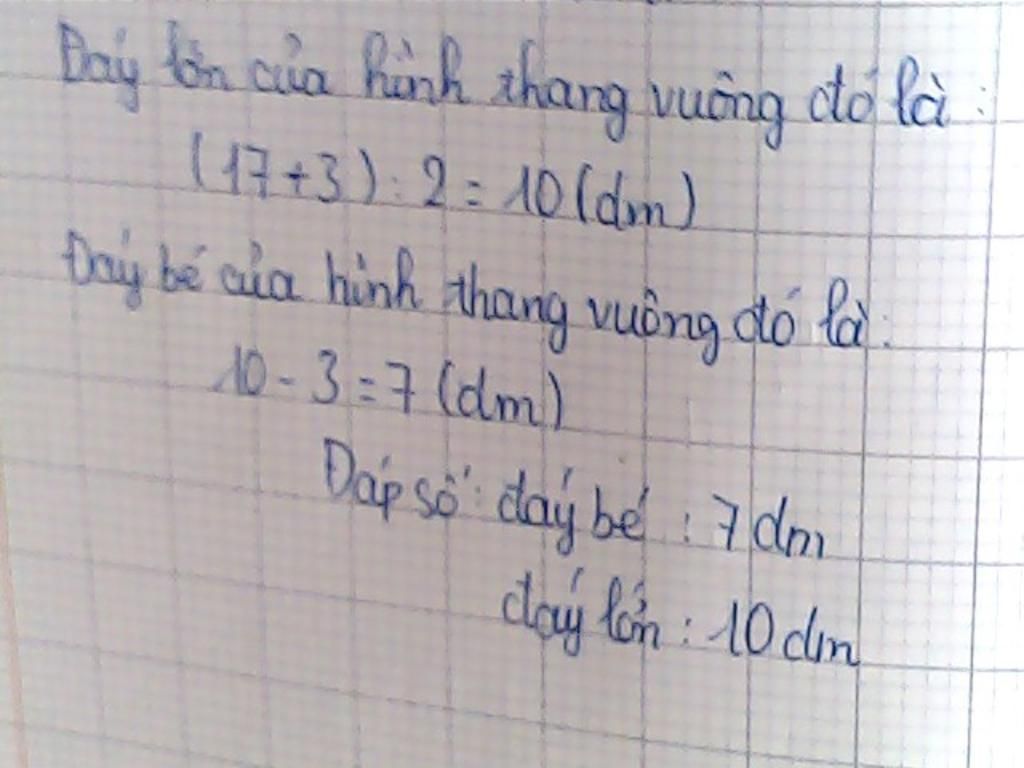 Đáy lớn của hình thang vuông đó là :
(17+3) : 2 = 10 (dm)
Đáy bé của hình thang vuông đó là:
10 - 3 = 7 (dm)
Đáp số : đáy bé : 7 dm
đáy lớn : 10 dm